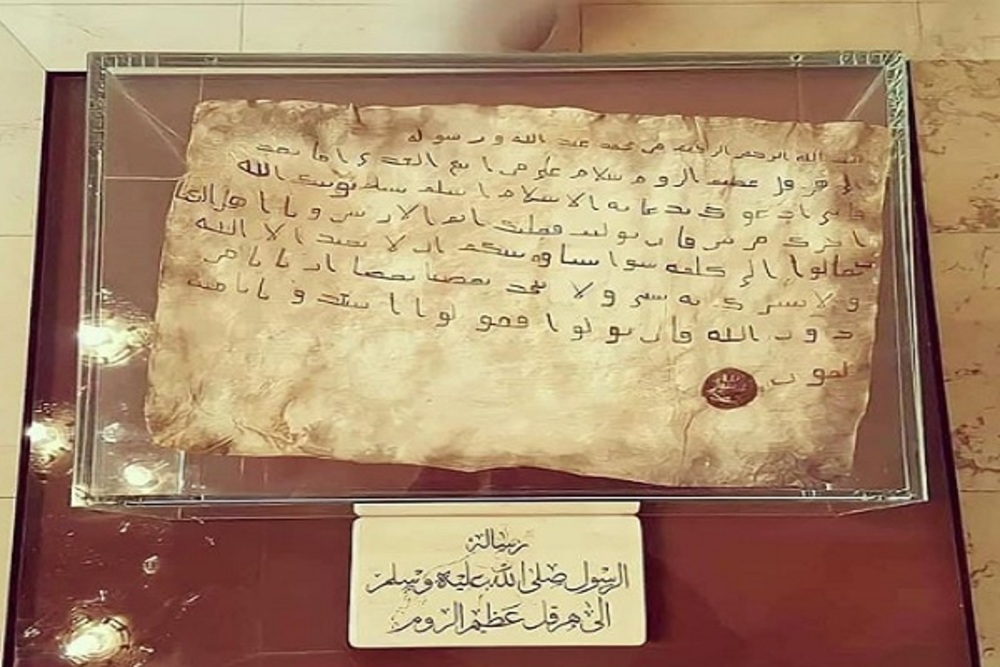 بسم الله الرحمن الرحيم من محمد عبد الله و رسوله
الى هرقل عظيم الروم سلام على من اتبع الهدى اما بعد
فانى ادعوك بدعاية الاسلام اسلم تسلم يوتك الله
اجرك مرتين فان توليت فعليك اثم الاريسين ويا اهل الكتا
ب تعالوا الى كلمة سوا بيننا وبينكم ان لا نعبد الا الله
ولا نشرك به شى ولا يتخذ بعضنا بعضا اربابا من
دون الله فان تولوا فقولوا اشهدوا بانا مس
لمون
رسالة
الرسول صلى الله عليه وسلم
الى هرقل عظيم الروم